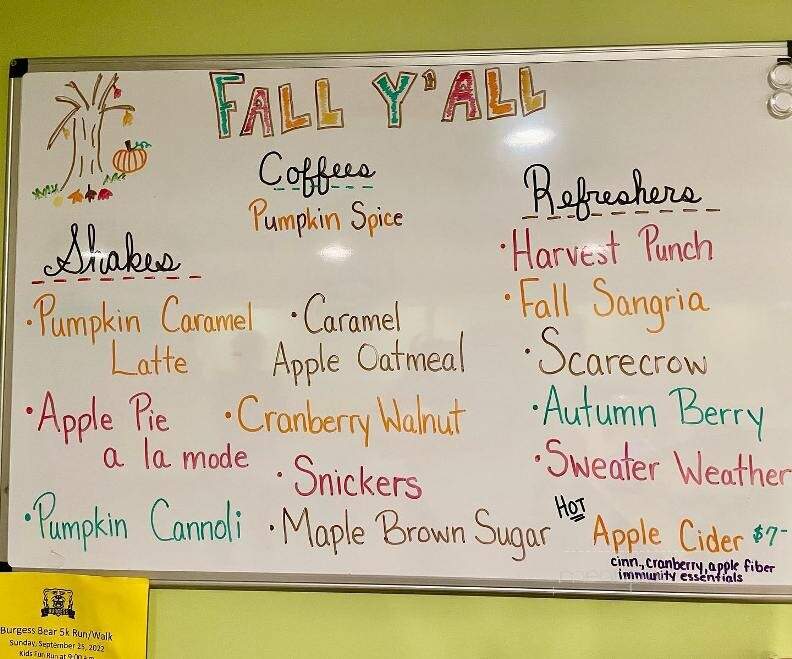 FALL Y'ALL
Coffees
Pumpkin Spice
Shakes
•Pumpkin Caramel
Latte
•Apple Pie
a la mode
•Pumpkin Cannoli
•Caramel
Apple Oatmeal
•Cranberry Walnut
•Snickers
•Maple Brown Sugar
Refreshers
•Harvest Punch
•Fall Sangria
•Scarecrow
•Autumn Berry
•Sweater Weather
HOT
Apple Cider $7-
cinn., cranberry, apple fiber
immunity essentials
Burgess Bear 5k Run/Walk
Sunday, September 25, 2022
Kids Fun Run at 9:00 a.m.